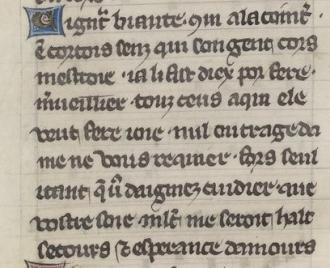 Dignͣt biaute qui a la coint̾
⁊ cortois senz qui son gent cors
mestroie · ia li fist diex por fere
mͥueillier · touz ceus a qui ele
veut fere ioie · nul outrage da
me ne vous requier · fors seul
itant q̄ u᷑ daigniez cuidier que
vostre soie · mlt̄ me seroit halt
secours ⁊ esperance damours